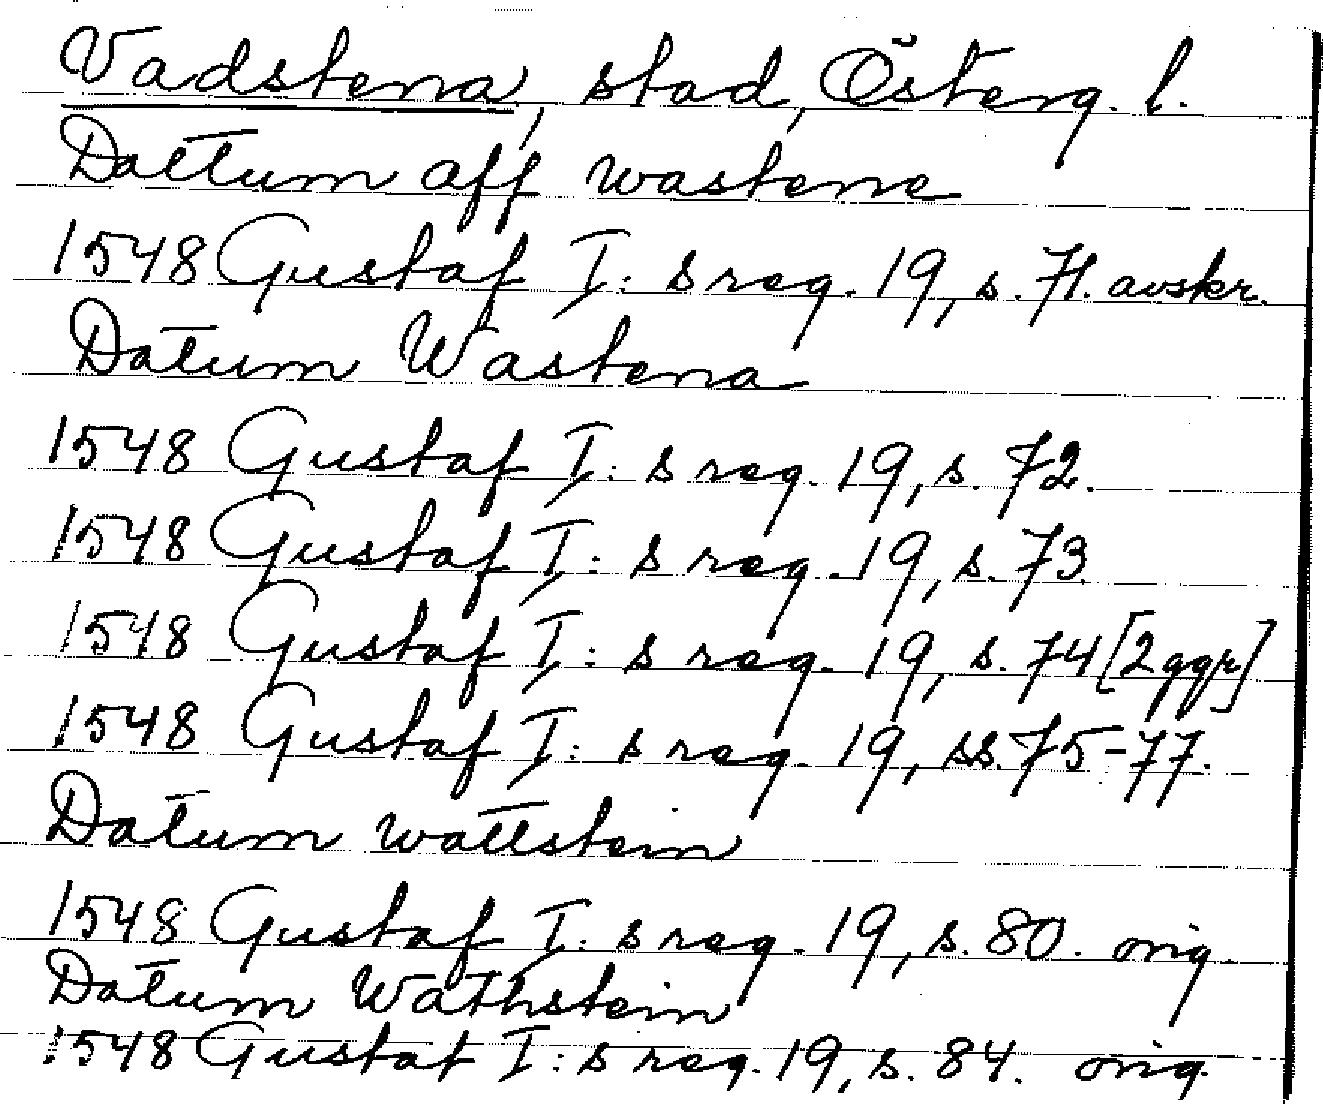 Vadstena, stad, Österg. l.
Dattum aff wastene
1548 Gustaf I:s reg. 19, s. 71. avskr.
Datum Wastena
1548 Gustaf I:s reg. 19, s. 72.
1548 Gustaf I:s reg. 19, s. 73
1548 Gustaf I:s reg. 19, s. 74 [2 ggr]
1548 Gustaf I:s reg. 19, ss. 75-77.
Datum wattstein
1548 Gustaf I:s reg. 19, s. 80. orig.
Datum Wathstein
1548 Gustaf I:s reg. 19, s. 84. orig.